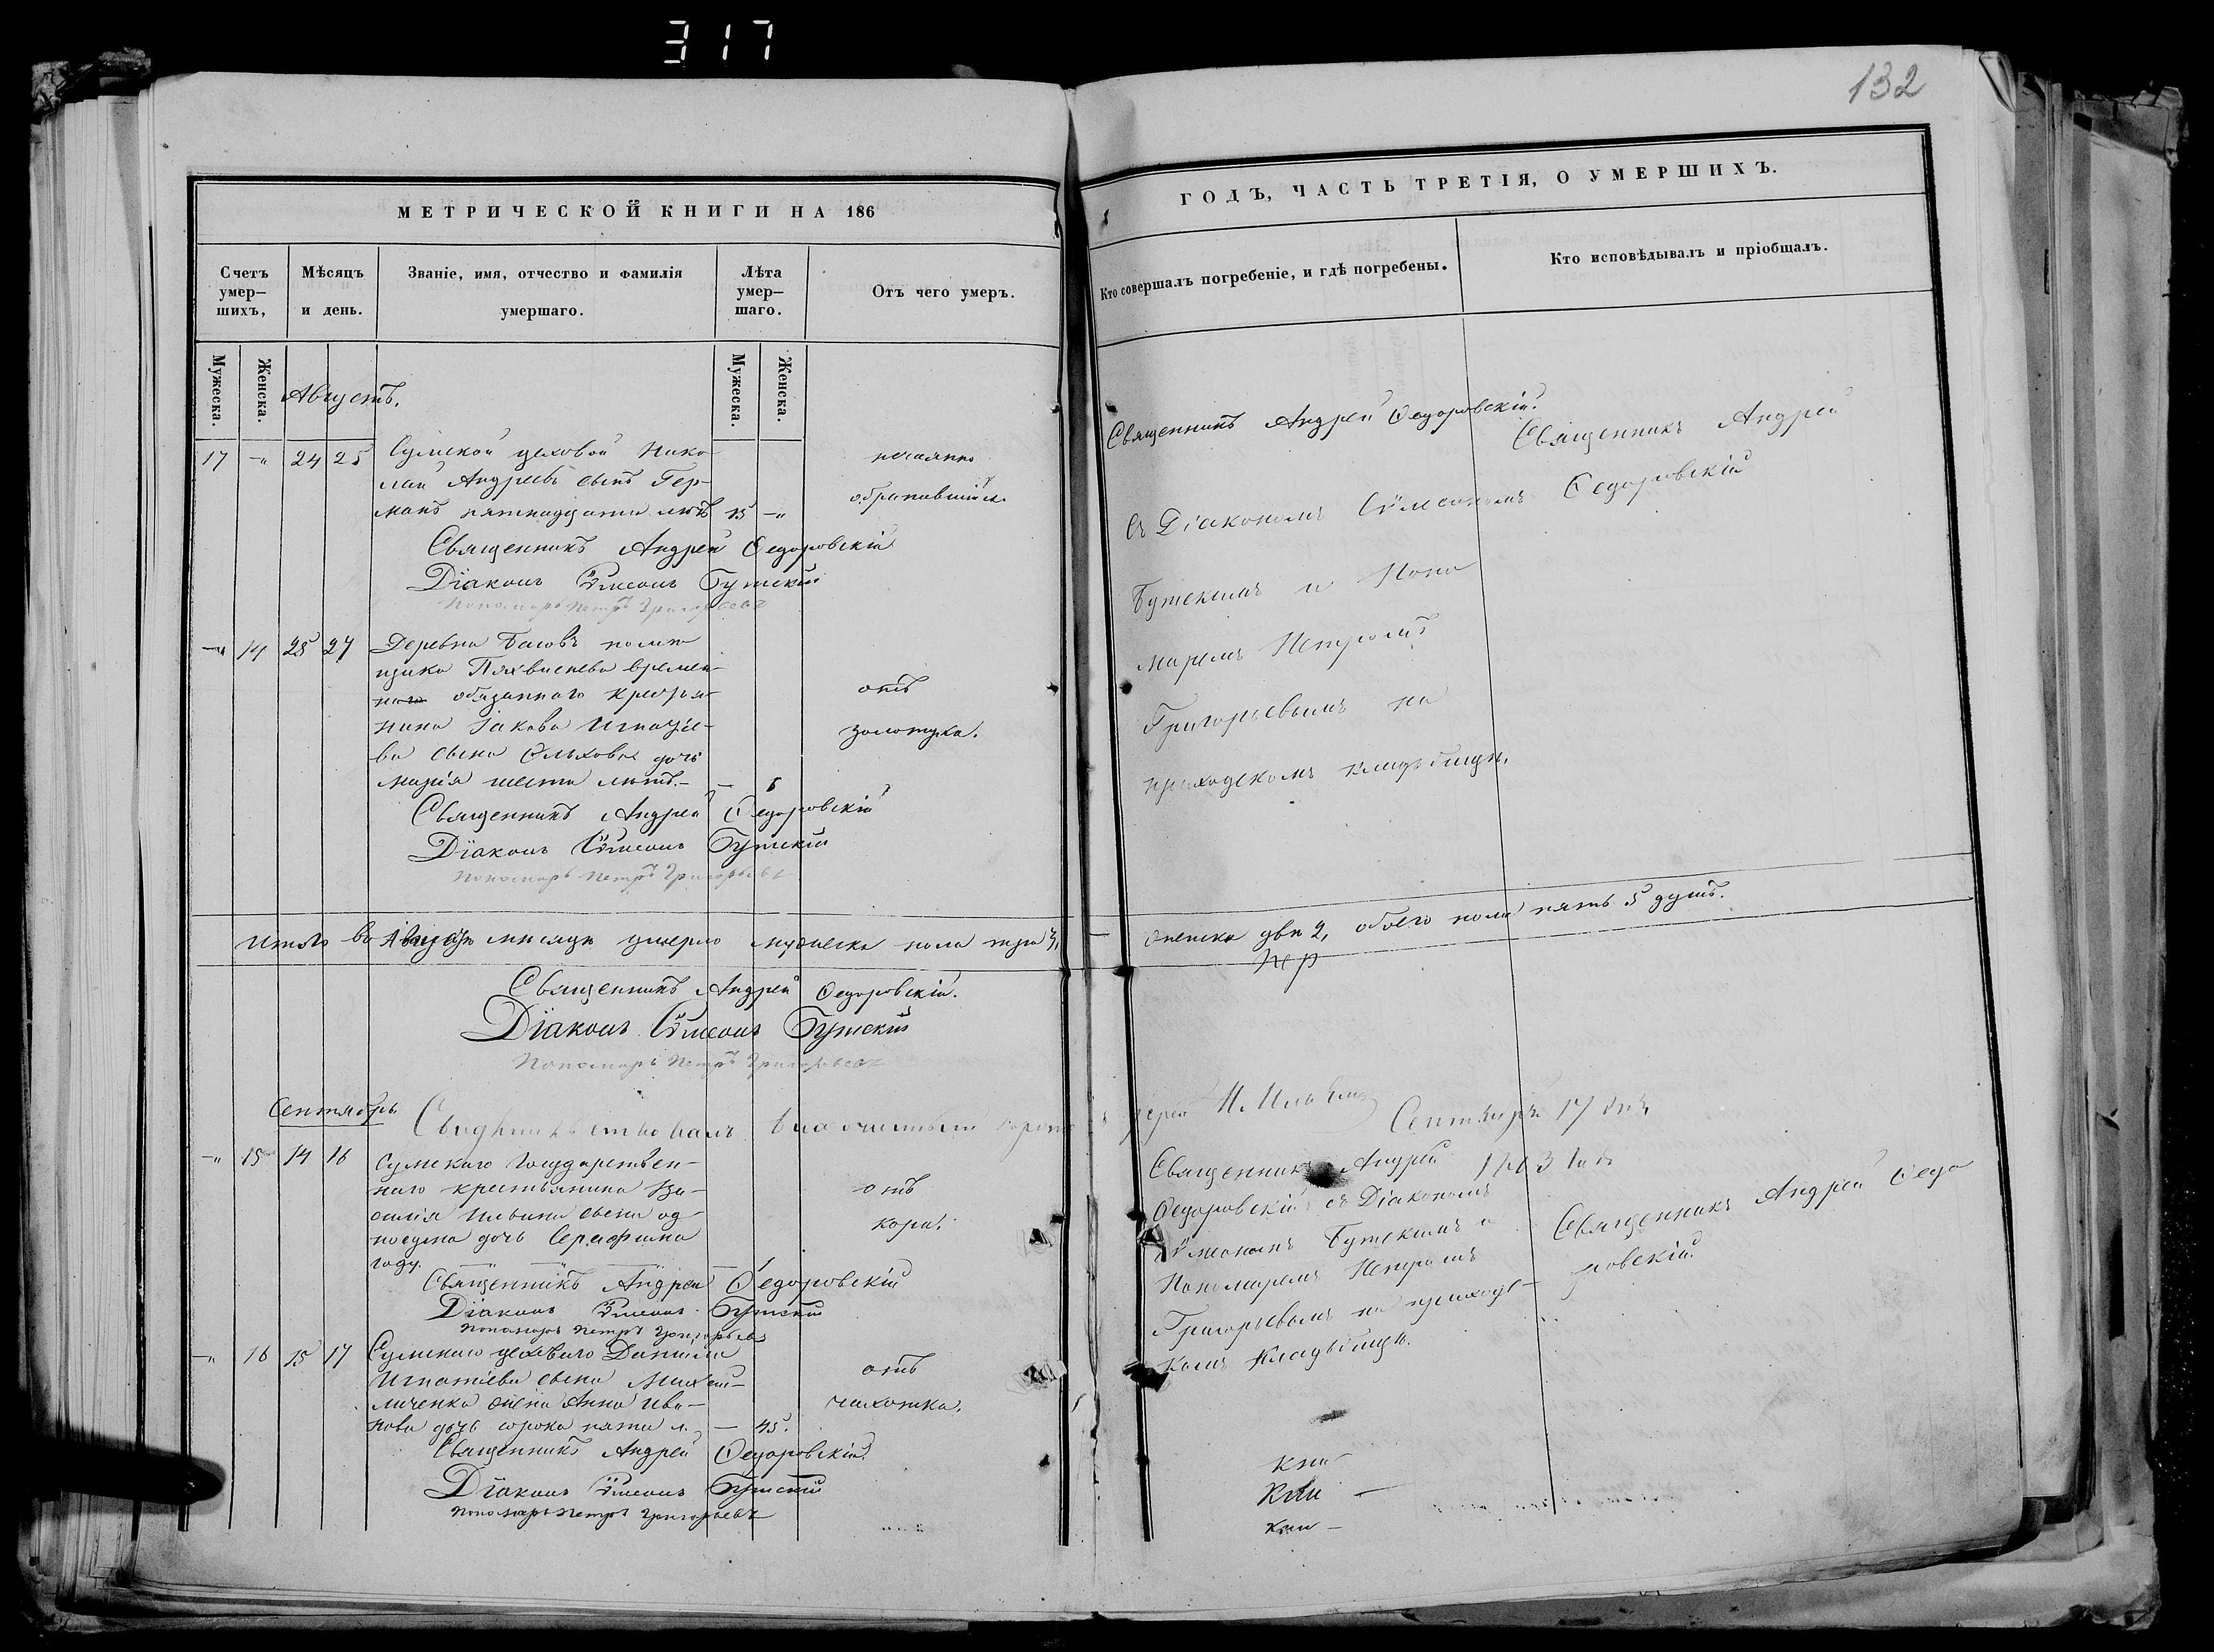 317
132
МЕТРИЧЕСКОЙ КНИГИ НА 186
ГОДЪ, ЧАСТЬ ТРЕТІЯ, О УМЕРШИХЪ.
Счетъ умер—шихъ,
Мѣсяцъ и день.
Званіе, имя, отчество и фамилія умершаго.
Лѣта умер—шаго.
Отъ чего умеръ.
Кто совершалъ погребеніе, и гдѣ погребены.
Кто исповѣдывалъ и пріобщалъ.
Мужеска.
Женска.
Мужеска.
Женска.
Августъ.
17 —" 24 25 Сумской цеховой Нико-
лай Андреевъ сынъ Гер-
манъ пятнадцати лѣтъ 15 —"
нечаянно
Священникъ Андрей Федоровскій
Діаконъ Сѵмеонъ Бутскій
Пономарь Петръ Григорьевъ
Священникъ Андрей Федоровскій.
съ Діакономъ Сѵмеономъ
Бутскимъ и Поно
маремъ Петромъ
Григорьевымъ на
приходскомъ кладбищѣ.
Священникъ Андрей
Федоровскій
—" 14 25 27 Деревни Басовъ помѣ-
щика времен-
наго обязаннаго крестья-
нина Іакова Игнатье-
ва сына дочь
Марія шести лѣтъ. — 6
отъ
золотухи.
Священникъ Андрей Федоровскій
Діаконъ Сѵмеонъ Бутскій
Пономарь Петръ Григорьевъ
Итого въ Августѣ мѣсяцѣ умерло мужеска пола три 3,
женска двѣ 2, обоего пола пять 5 душъ.
Священникъ Андрей Федоровскій.
Діаконъ Сѵмеонъ Бутскій
Пономарь Петръ Григорьевъ
Сентябрь
Свидѣтельствовалъ Благочинный
Сентября 17 дня
1863 года
—" 15 14 16 Сумскаго Государствен-
наго крестьянина Ва-
силія Ильина сына
дочь Серафима
году.
отъ
кори.
Священникъ Андрей Федоровскій
Діаконъ Сѵмеонъ Бутскій
Пономарь Петръ Григорьевъ
Священникъ Андрей
Федоровскій съ Діакономъ
Сѵмеономъ Бутскимъ и
Пономаремъ Петромъ
Григорьевымъ на приходс-
комъ кладбищѣ.
Священникъ Андрей Федо
ровскій
—" 16 15 17 Сумскаго цеховаго Даніила
Игнатіева сына Михай-
личенка жена Анна Ива-
нова дочь сорока пяти л. — 45.
отъ
чахотки.
Священникъ Андрей Федоровскій
Діаконъ Сѵмеонъ Бутскій
Пономарь Петръ Григорьевъ